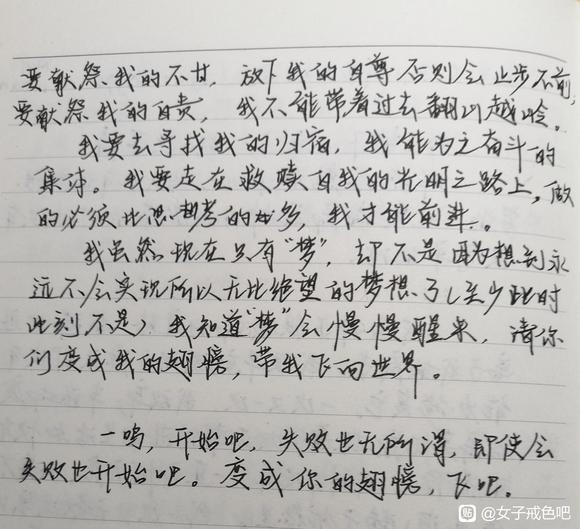 要献祭我的不甘，放下我的自尊否则会止步不前，
要献祭我的自责，我不能带着过去翻山越岭。
我要去寻找我的归宿，我能为之奋斗的
集体。我要走在救赎自我的光明之路上，做
的必须比思考的多，我才能前进。
我虽然现在只有“梦”，却不是因为想到永
远不会实现所以无比绝望的梦想了（至少此时
此刻不是）我知道“梦”会慢慢醒来，请你
们变成我的翅膀，带我飞向世界。
一呜，开始吧，失败也无所谓，即使会
失败也开始吧。变成你的翅膀，飞吧。
贴 @女子戒色吧